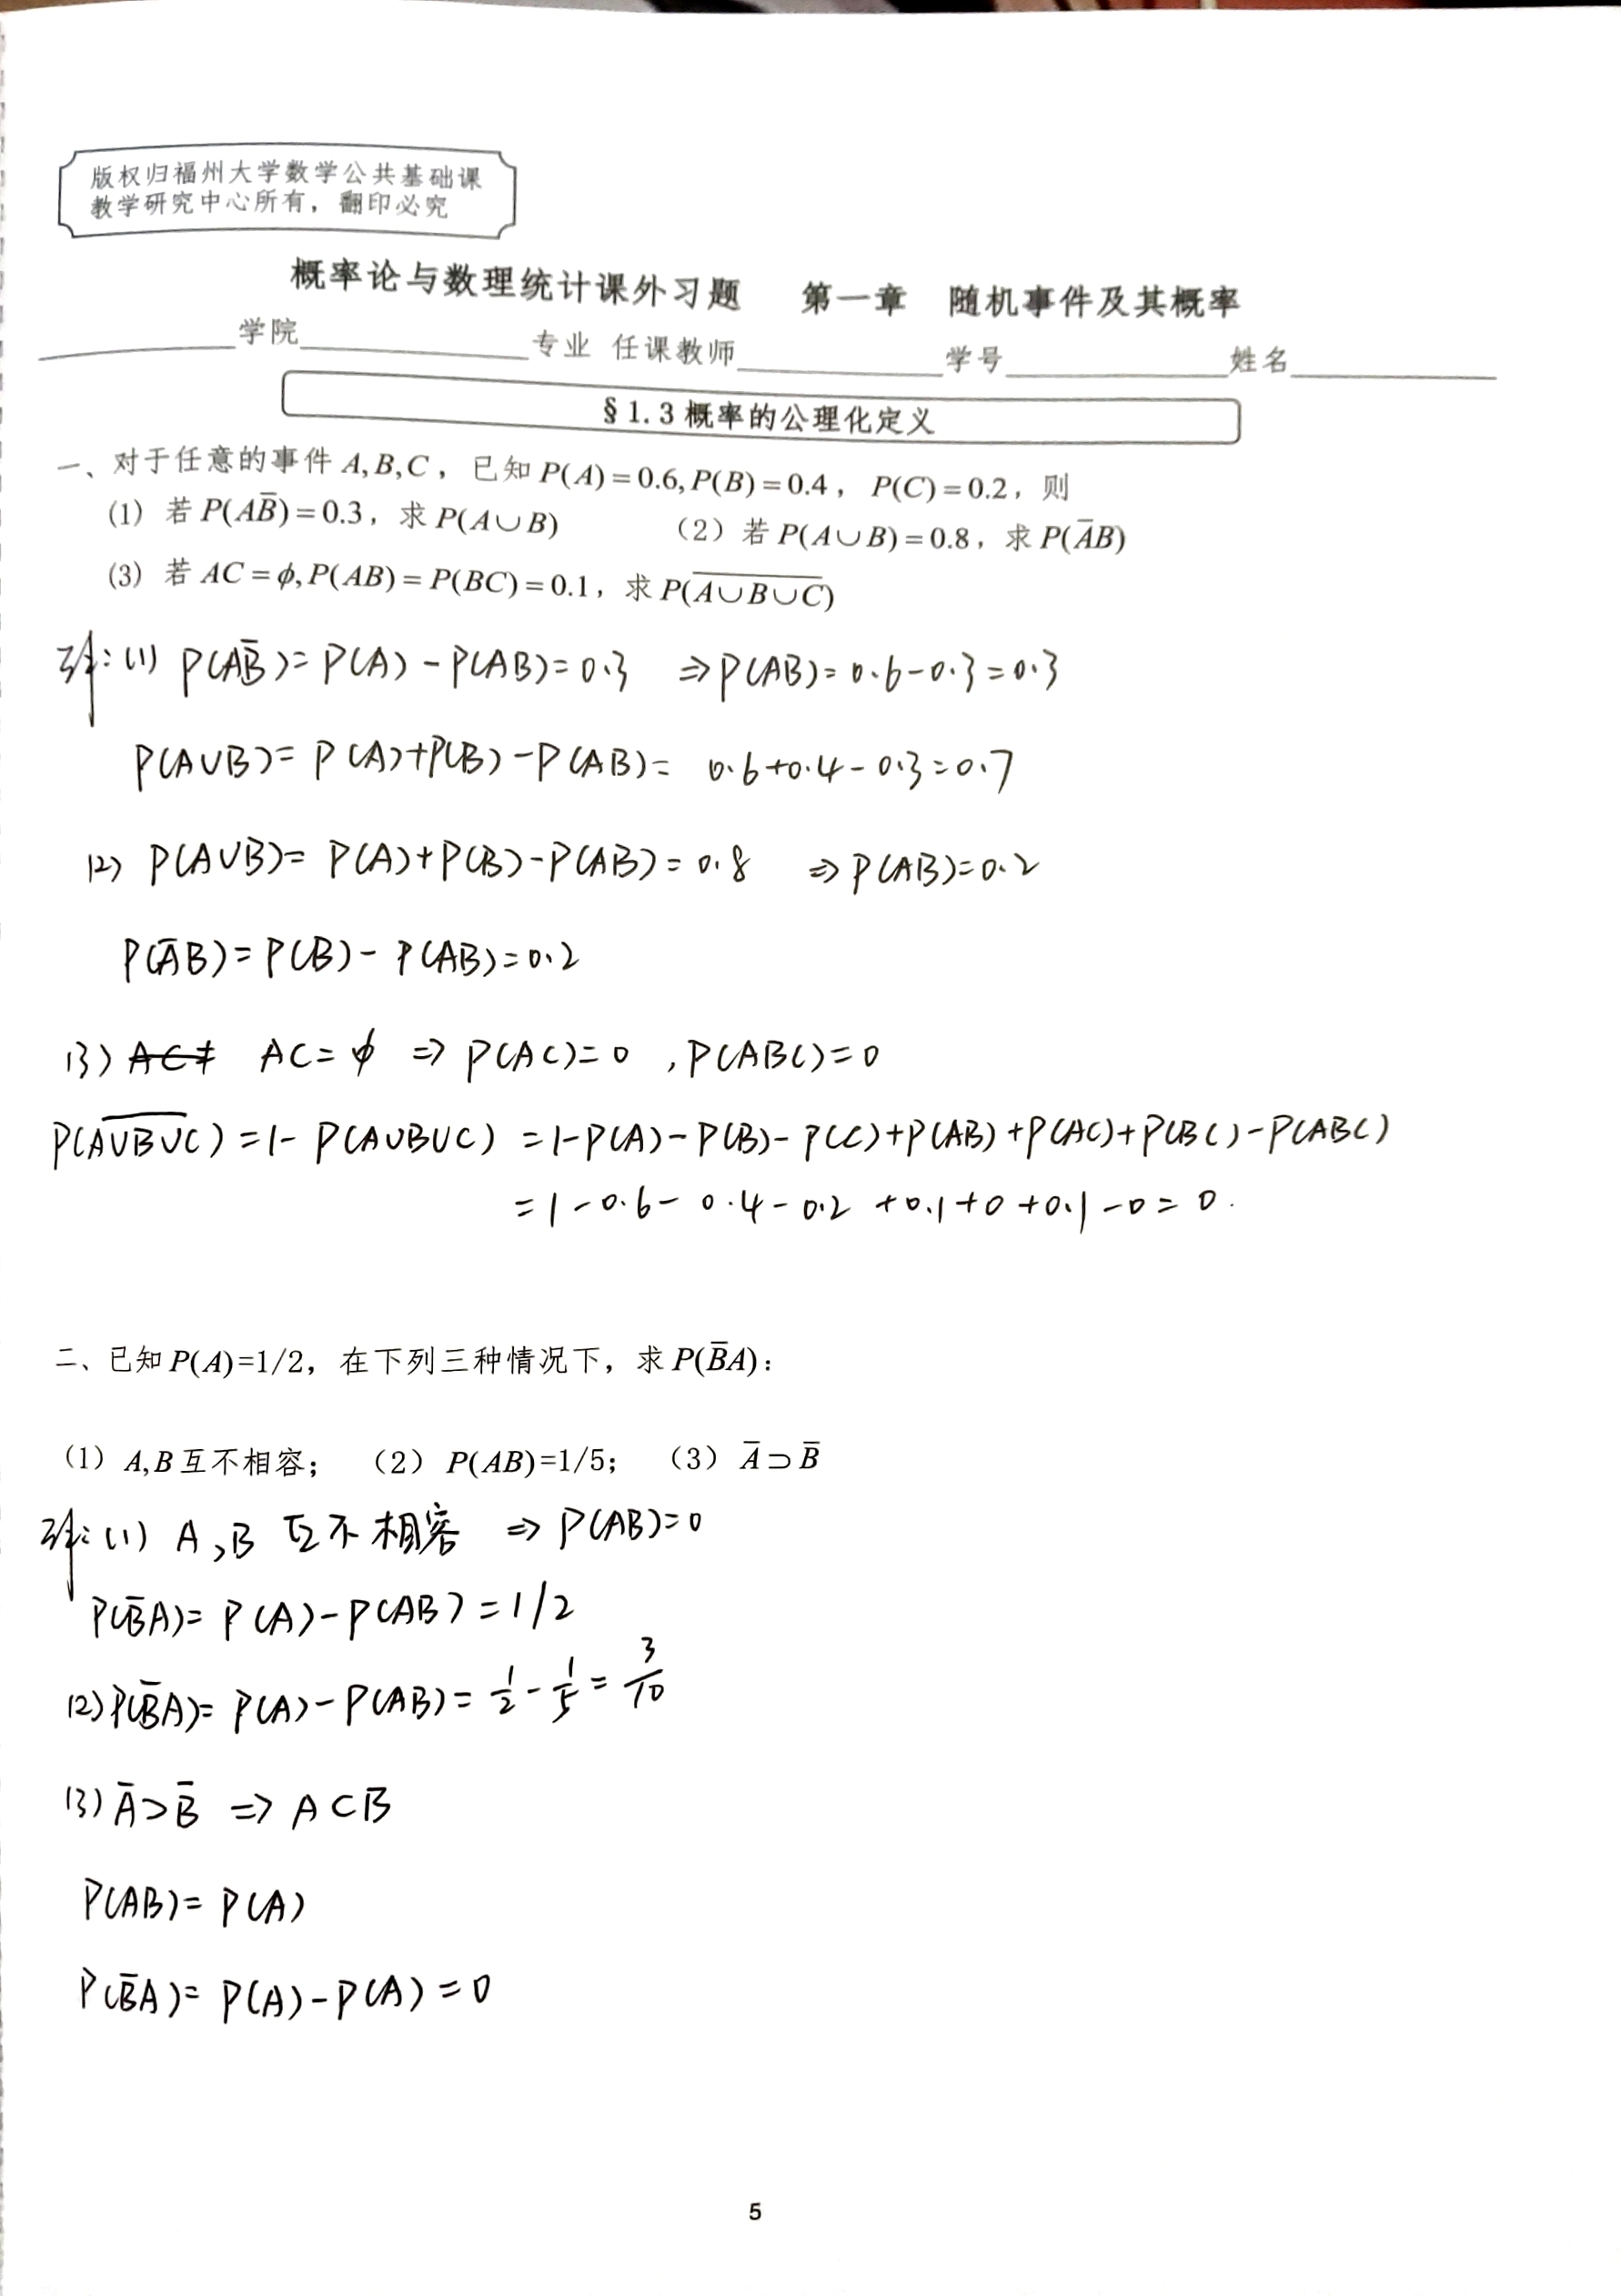 版权归福州大学数学公共基础课
教学研究中心所有，翻印必究
概率论与数理统计课外习题 第一章 随机事件及其概率
学院 专业 任课教师 学号 姓名
§1.3 概率的公理化定义
一、对于任意的事件 A,B,C，已知 P(A)=0.6,P(B)=0.4，P(C)=0.2，则
(1) 若 P(AB̅)=0.3，求 P(A∪B) （2）若 P(A∪B)=0.8，求 P(A̅B)
(3) 若 AC=ϕ,P(AB)=P(BC)=0.1，求 P(\overline{A∪B∪C})
解：(1) P(AB̅)=P(A)-P(AB)=0.3 ⇒P(AB)=0.6-0.3=0.3
P(A∪B)=P(A)+P(B)-P(AB)=0.6+0.4-0.3=0.7
(2) P(A∪B)=P(A)+P(B)-P(AB)=0.8 ⇒P(AB)=0.2
P(A̅B)=P(B)-P(AB)=0.2
(3) AC≠ AC=ϕ ⇒P(AC)=0 ,P(ABC)=0
P(\overline{A∪B∪C})=1-P(A∪B∪C)=1-P(A)-P(B)-P(C)+P(AB)+P(AC)+P(BC)-P(ABC)
=1-0.6-0.4-0.2+0.1+0+0.1-0=0.
二、已知 P(A)=1/2，在下列三种情况下，求 P(B̅A)：
（1）A,B 互不相容； （2）P(AB)=1/5； （3）A̅⊃B̅
解：(1) A,B 互不相容 ⇒P(AB)=0
P(B̅A)=P(A)-P(AB)=1/2
(2)P(B̅A)=P(A)-P(AB)=1/2-1/5=3/10
(3)A̅⊃B̅ ⇒A⊂B
P(AB)=P(A)
P(B̅A)=P(A)-P(A)=0
5